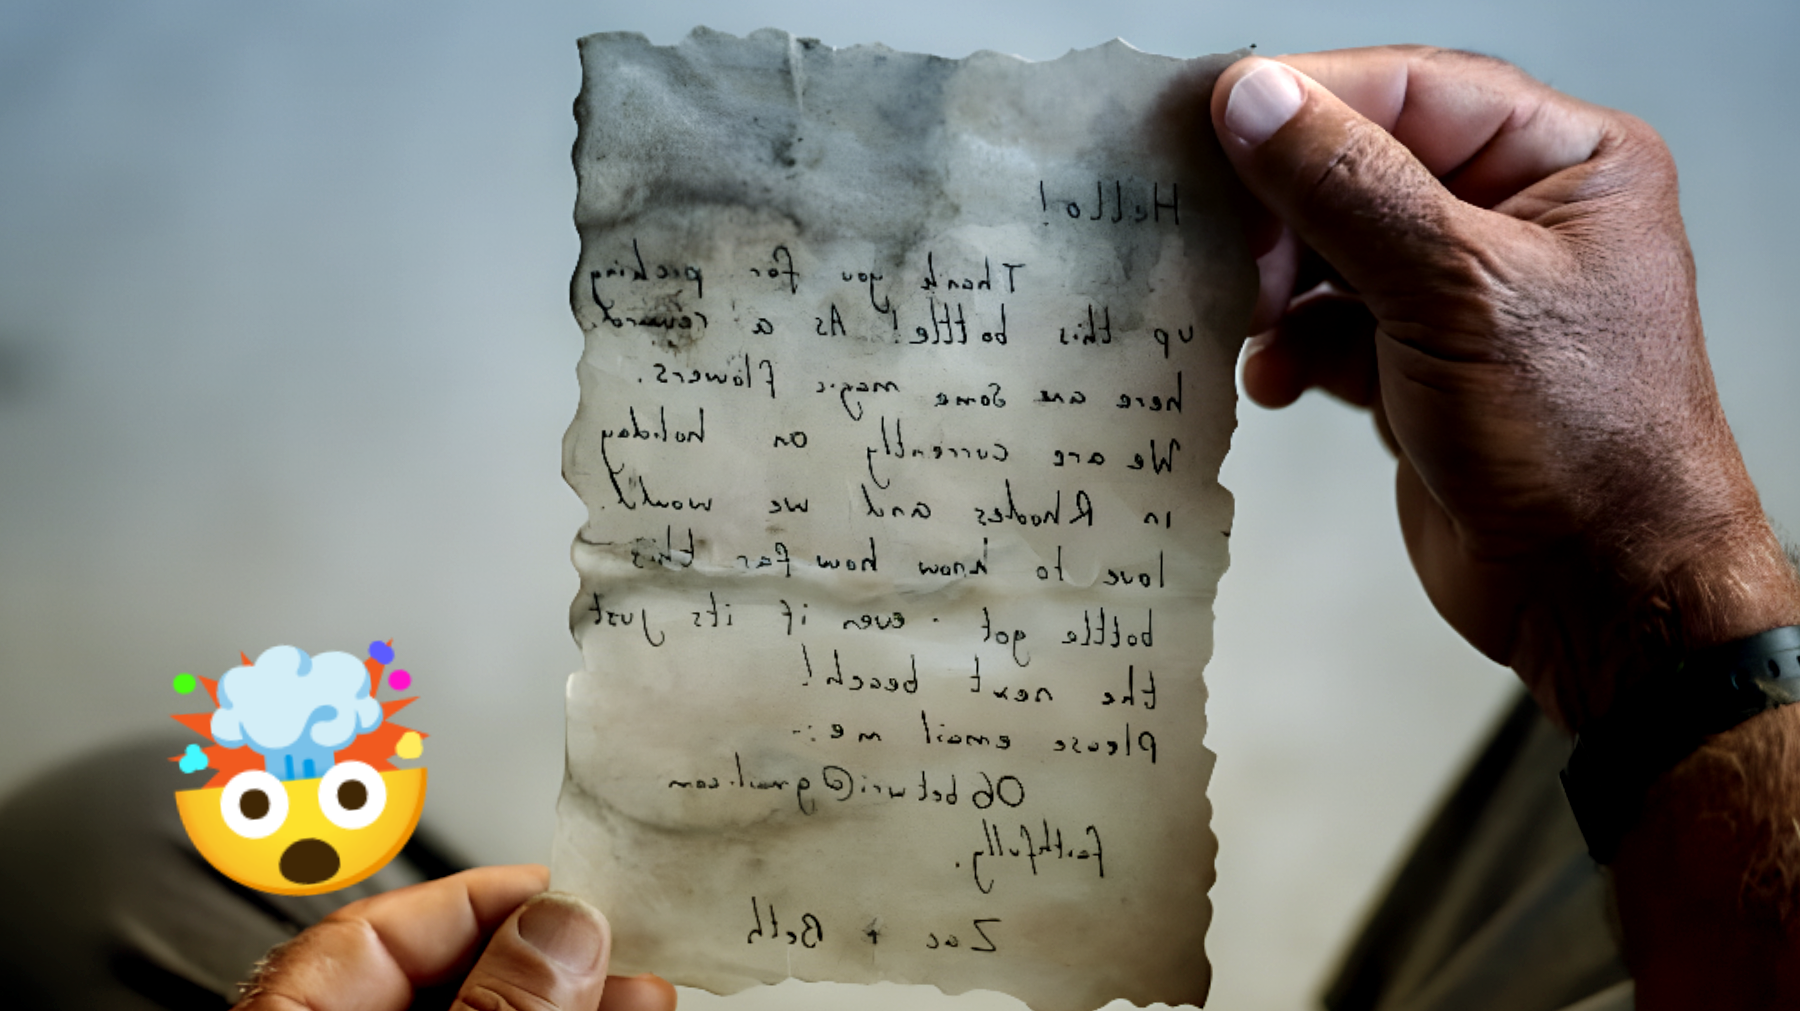 Hello!
Thank you for picking
up this bottle! As a reward.
here are some magic flowers.
We are currently on holiday
in Rhodes and we would.
love to know how far this
bottle got. even if its just
the next beach!
Please email me:-
@gmail.com
faithfully.
Zac + Beth